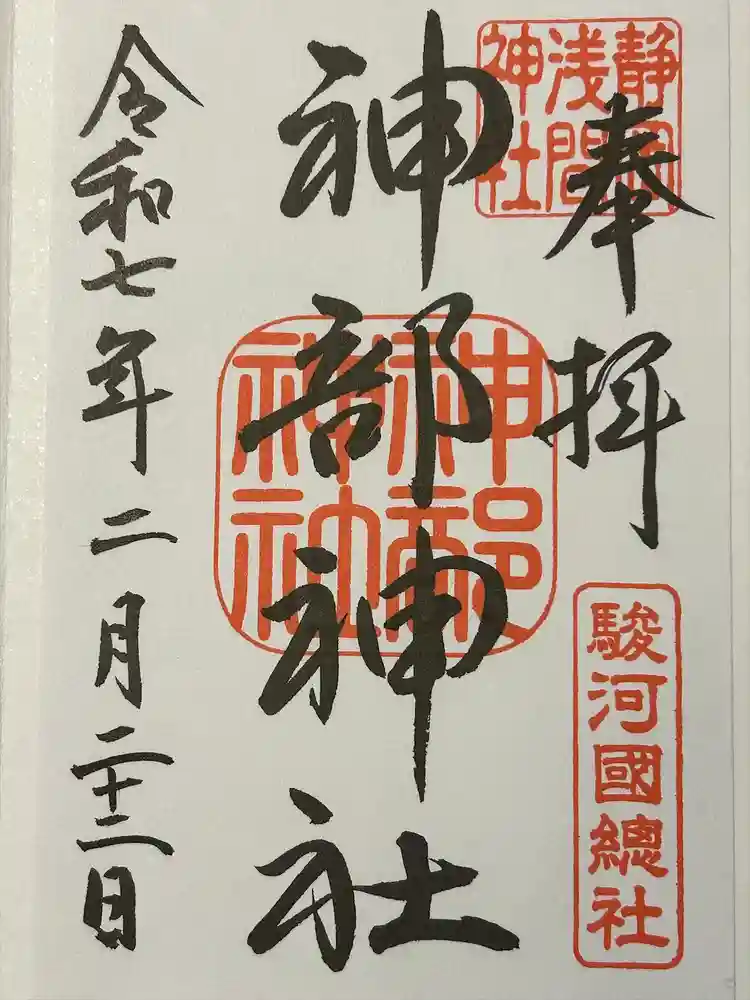 静岡
浅間
神社
奉拝
駿河國總社
神部神社
神部
神社
令和七年二月二十二日